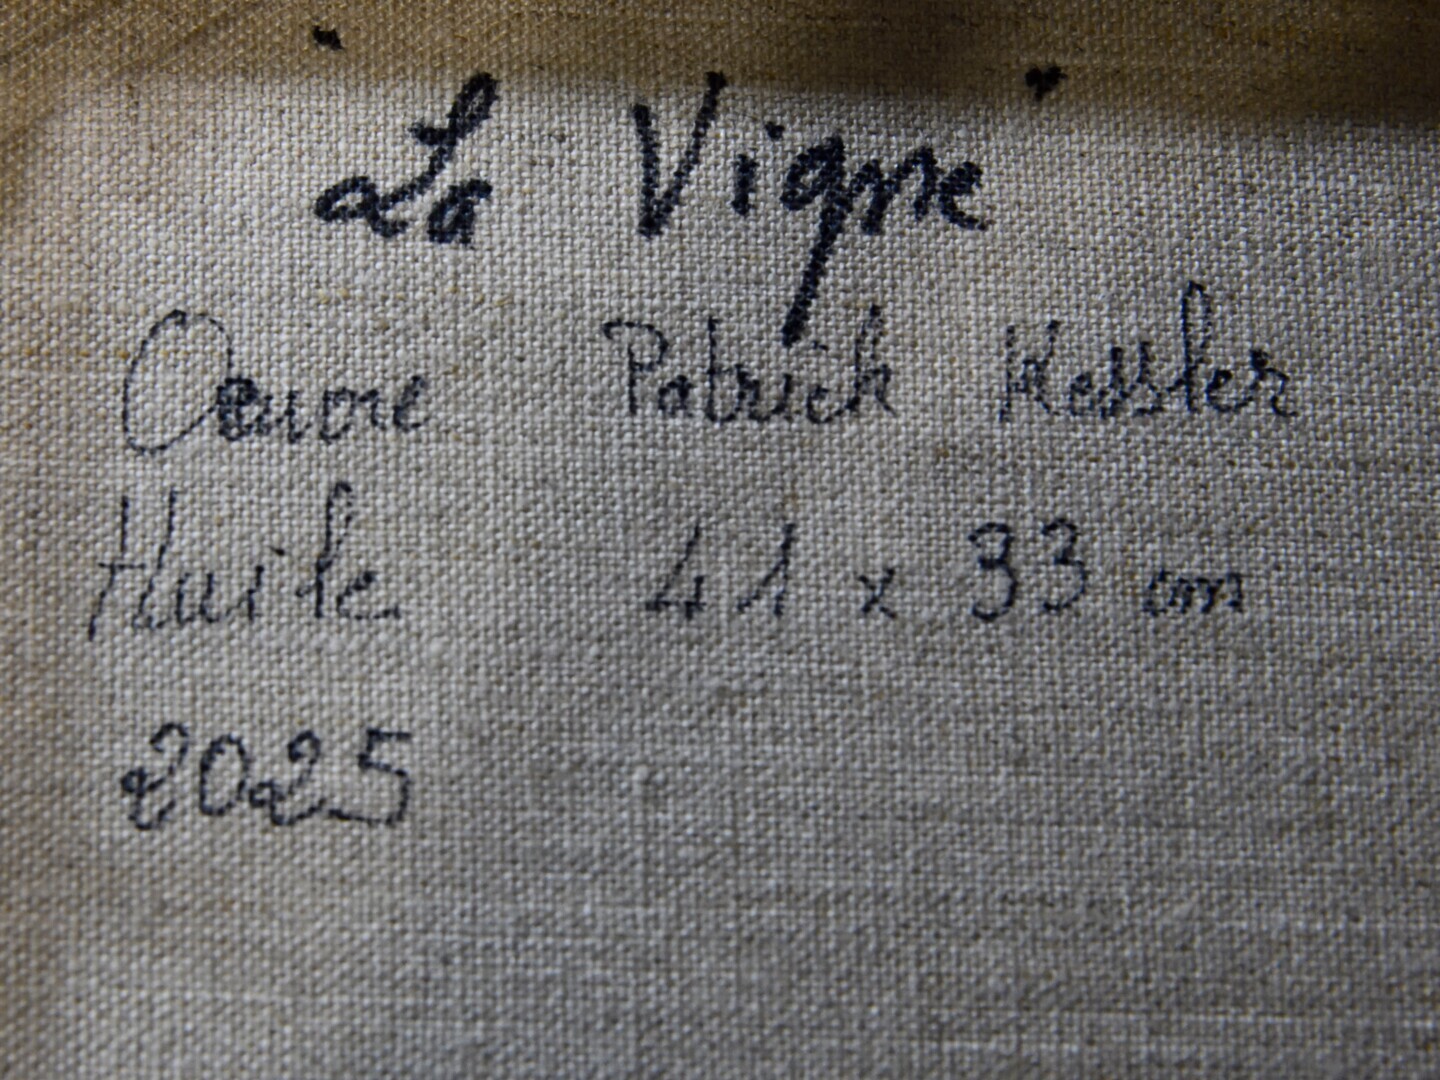 "La Vigne"
Oeuvre Patrick Kessler
Huile 41 x 33 cm
2025